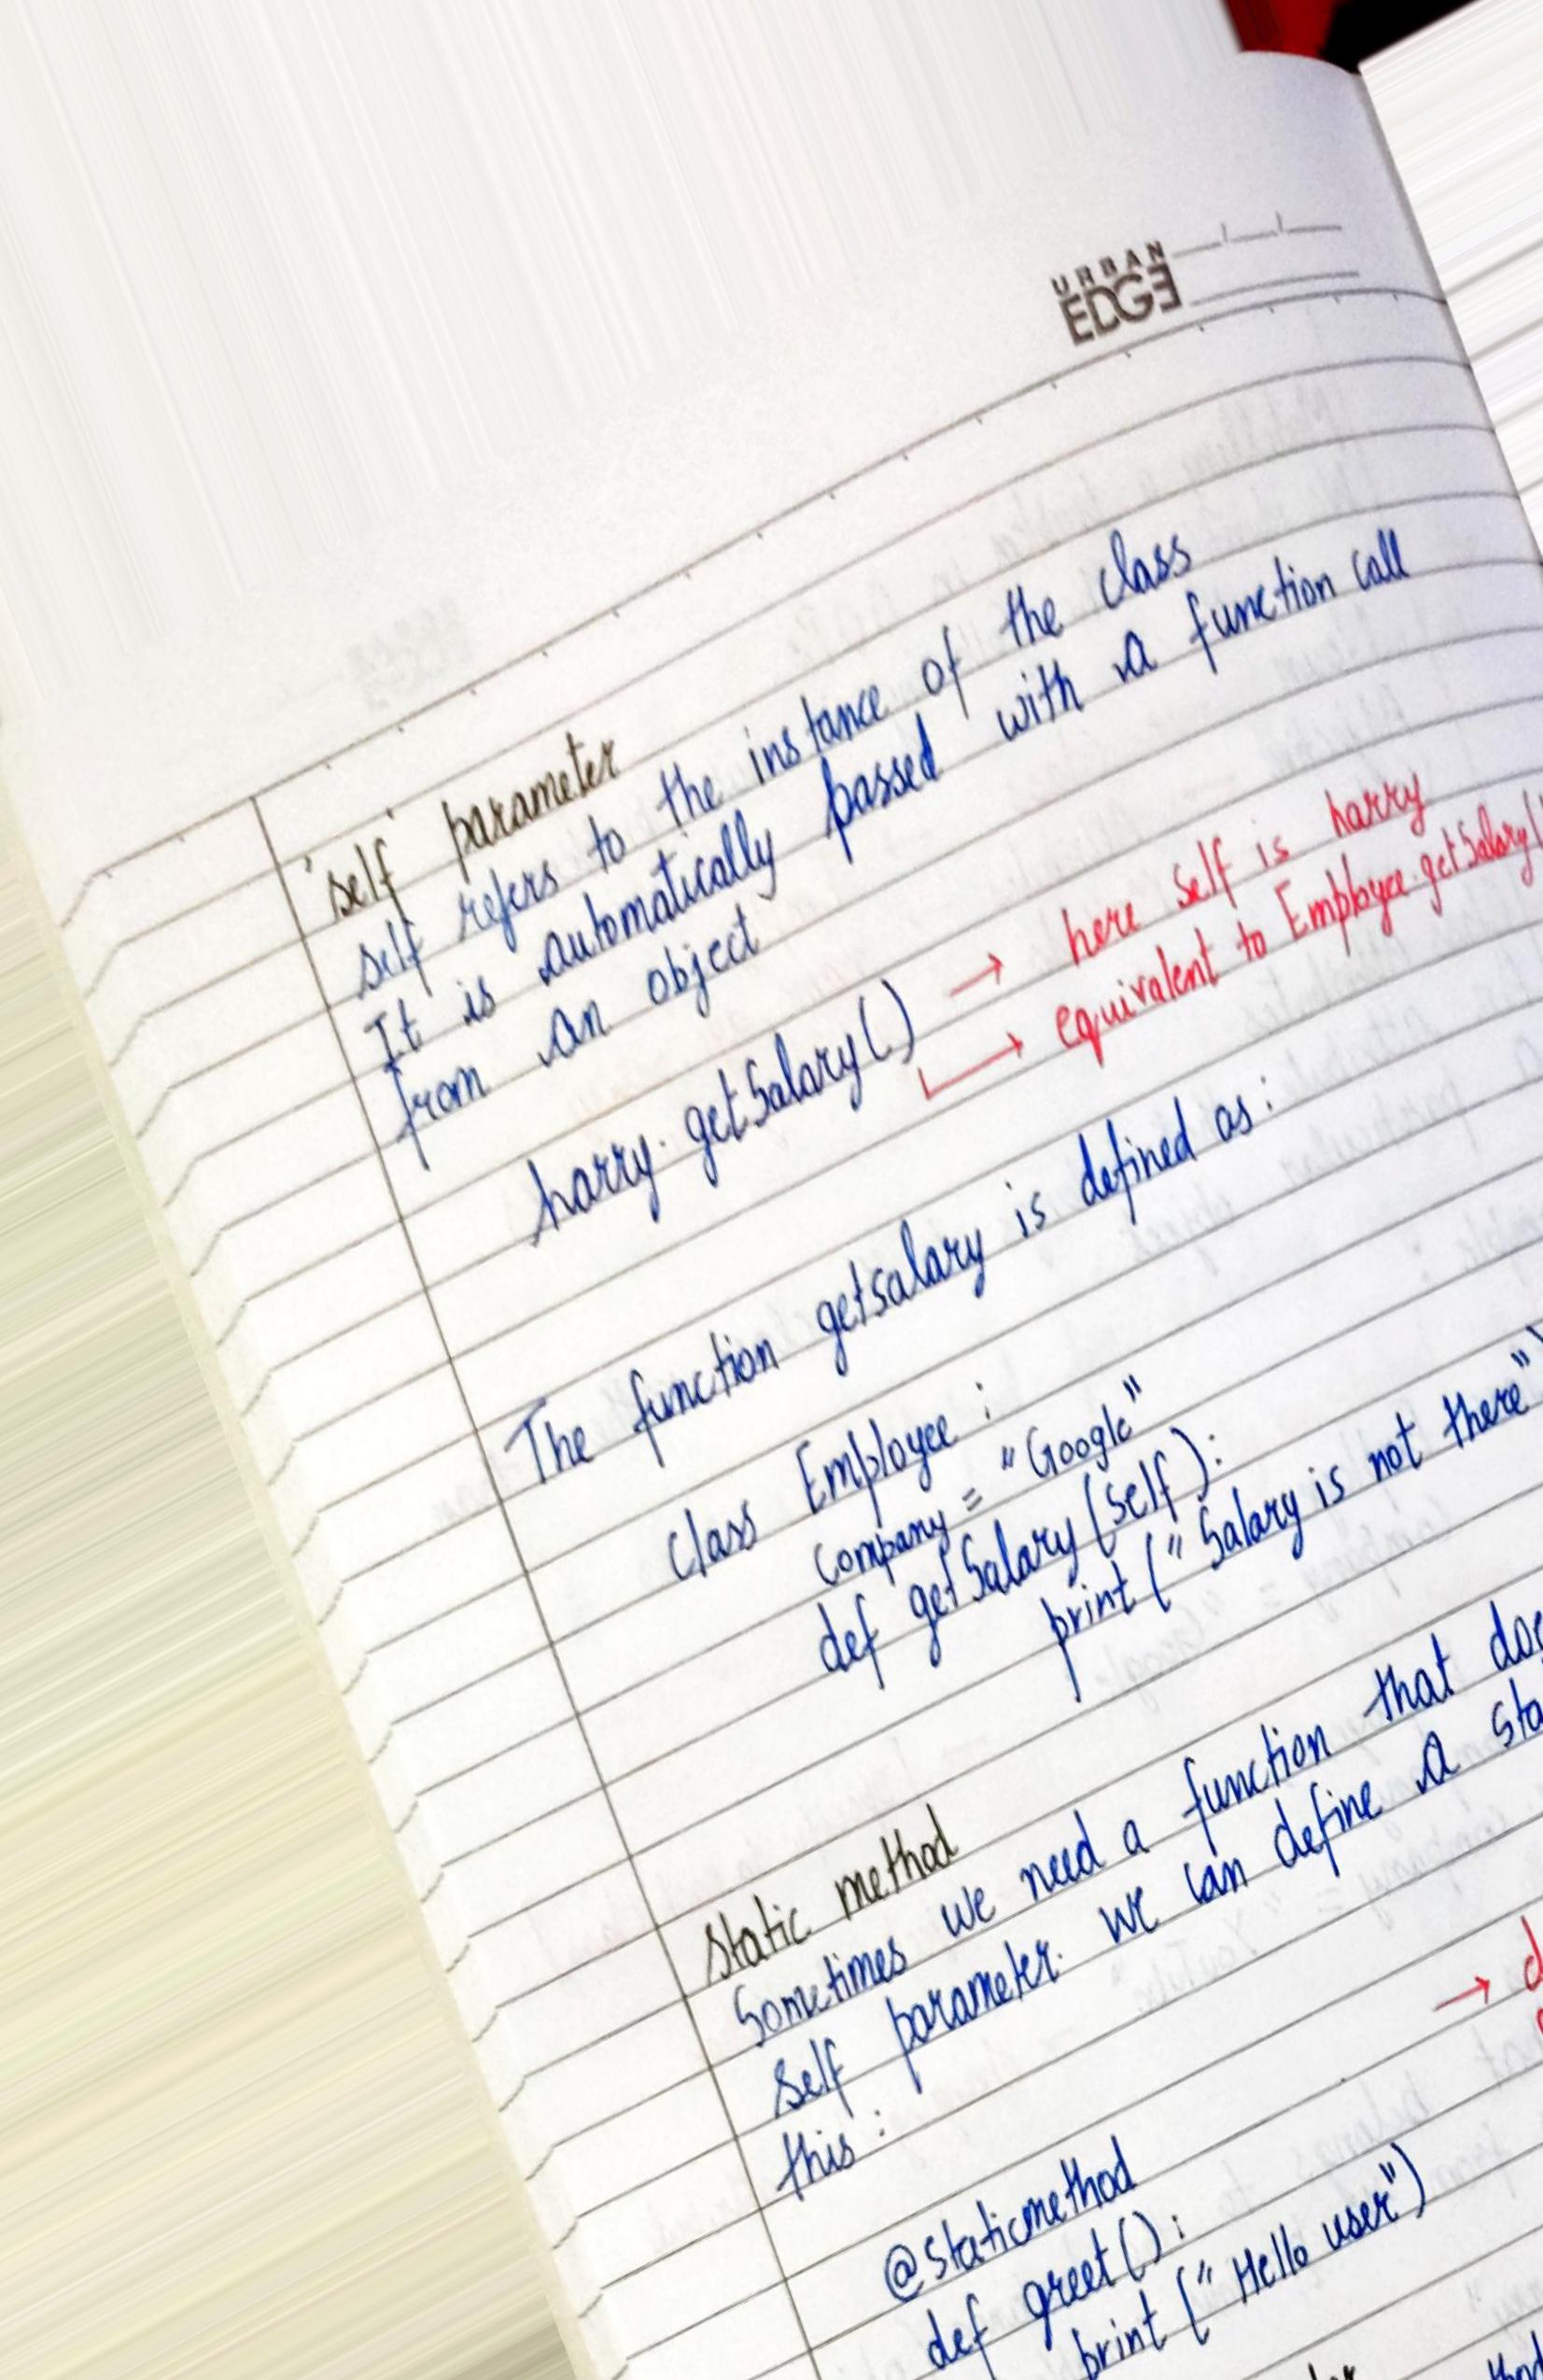 URBAN
EDGE
'self' parameter
self refers to the instance of the class
It is automatically passed with a function call
from an object
harry.getSalary() → here self is harry
→ equivalent to Employee.getSalary(
The function getsalary is defined as:
class Employee:
company = "Google"
def getSalary(self):
print("Salary is not there")
static method
Sometimes we need a function that
self parameter. we can define a
this:
→
@staticmethod
def greet():
print("Hello user")